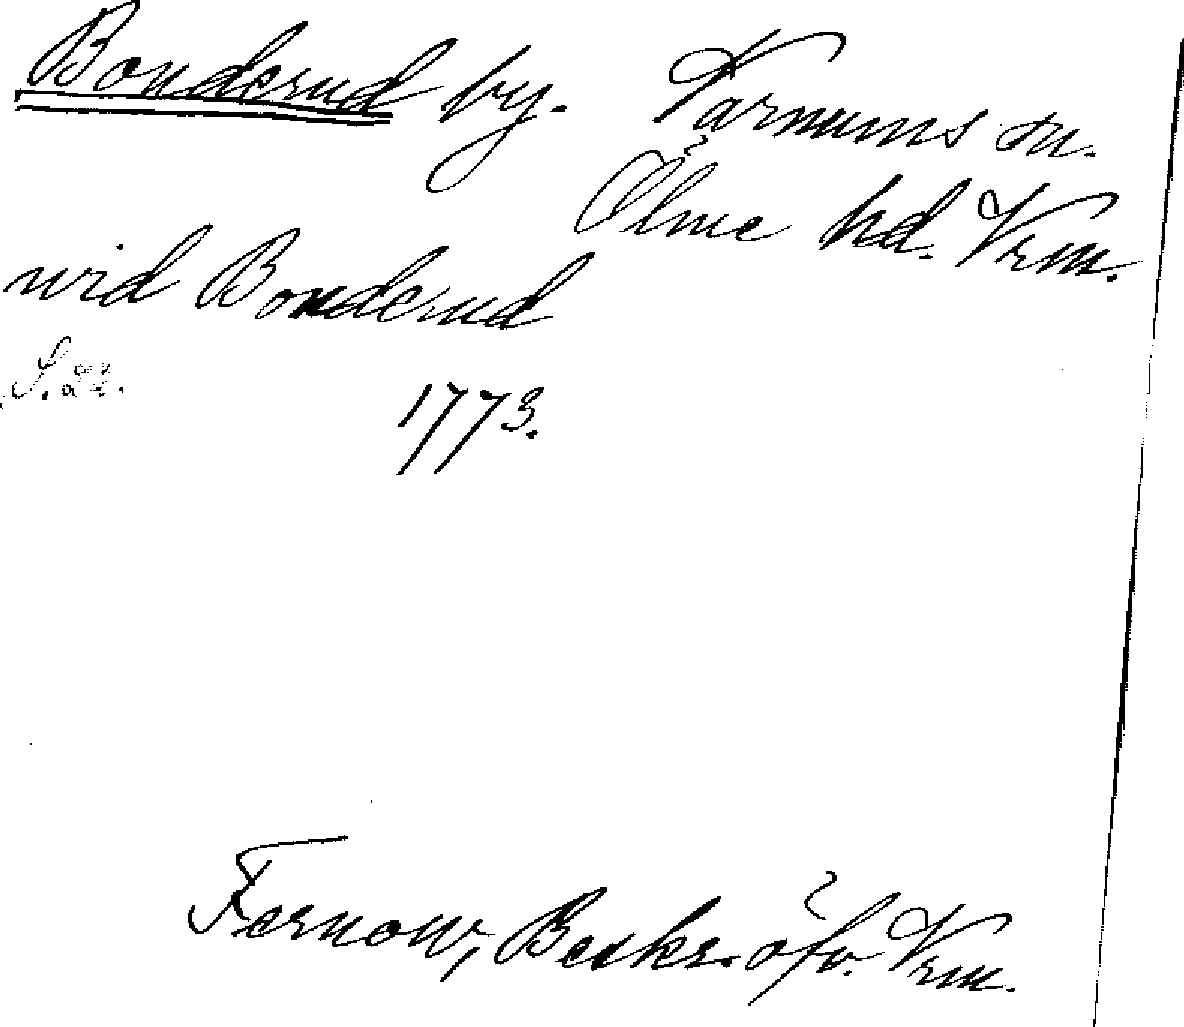 Bonderud by. Varnums sn.
Ölme hd. Vrm.
wid Bonderud
S. 22.
1773.
Fernow, Beskr. öfv. Vrm.